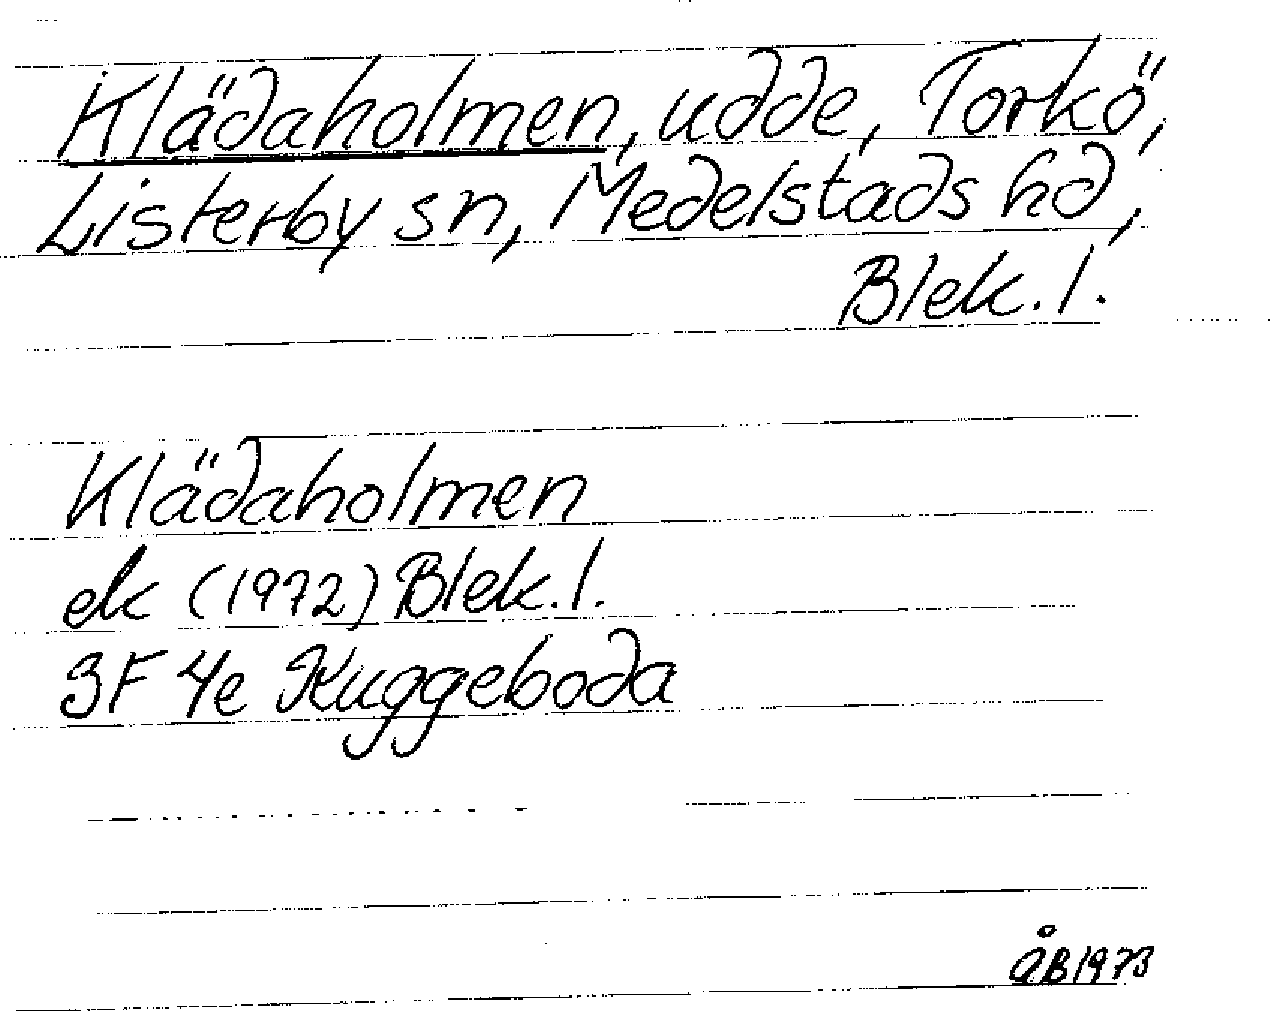 Klädaholmen, udde, Torkö,
Listerby sn, Medelstads hd,
Blek. l.
Klädaholmen
ek (1972) Blek. l.
3F 4e Kuggeboda
ÅB 1973